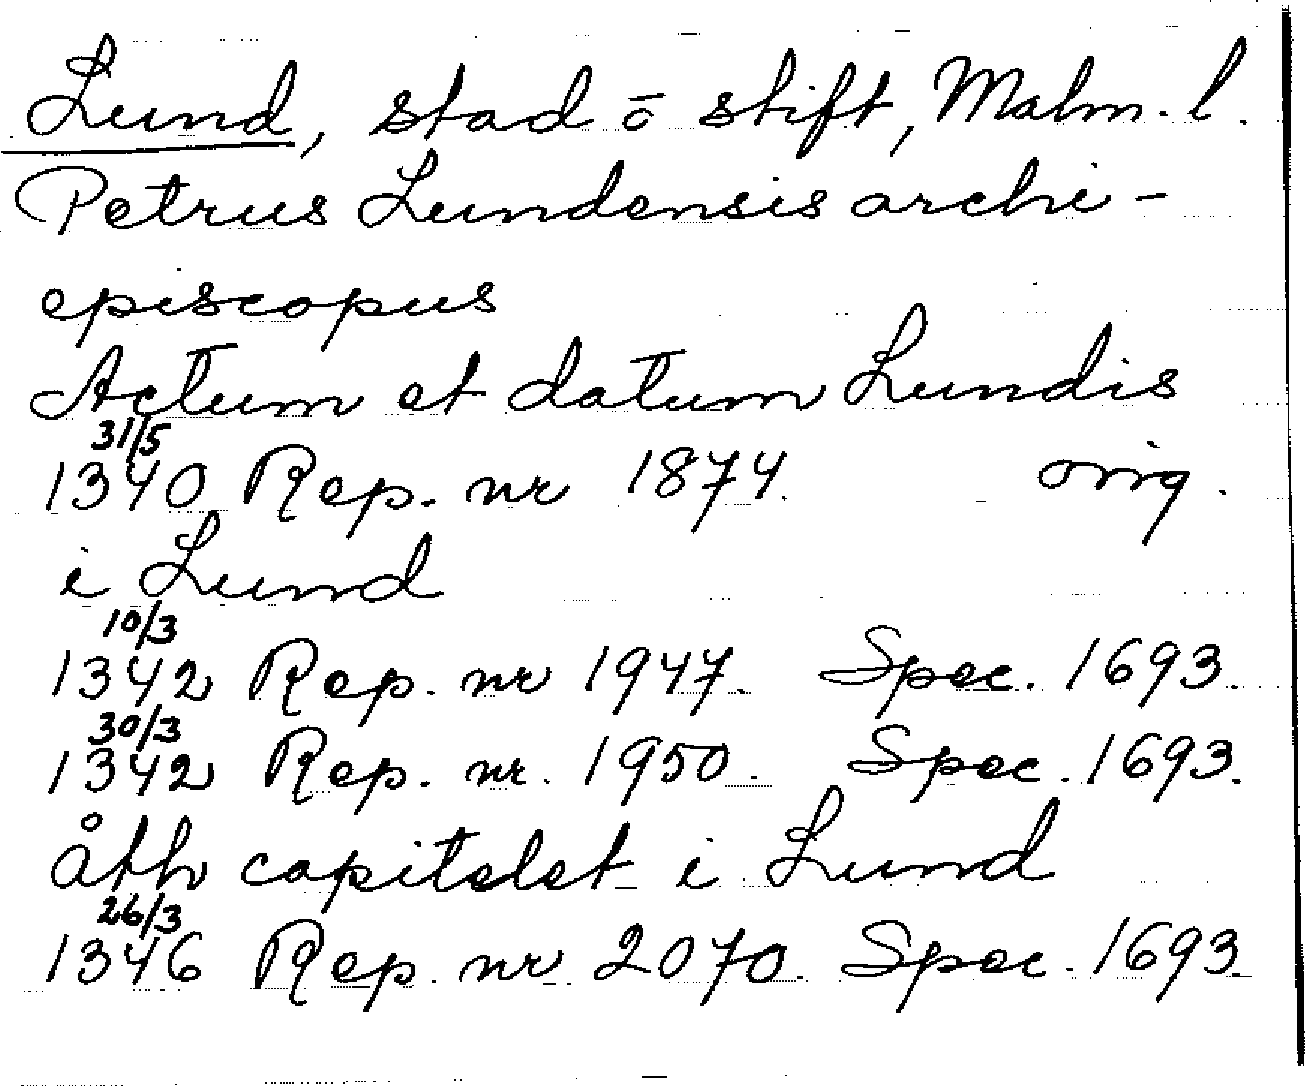 Lund, stad ō stift, Malm. l.
Petrus Lundensis archi-
episcopus
Actum et datum Lundis
31/5
1340 Rep. nr 1874. orig.
i Lund
10/3
1342 Rep. nr 1947. Spec. 1693.
30/3
1342 Rep. nr. 1950. Spec. 1693.
åth capitelet i Lund
26/3
1346 Rep. nr 2070. Spec. 1693.